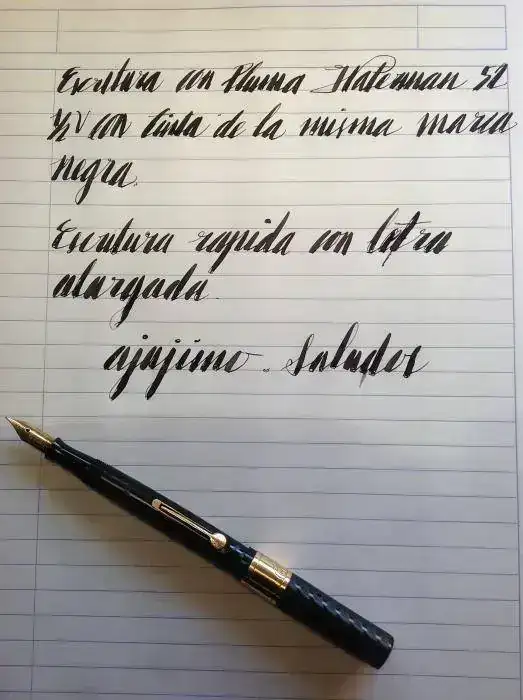 Escritura con Pluma Waterman 52
½ V con tinta de la misma marca
negra.
Escritura rapida con letra
alargada.
ajajimo. Saludos